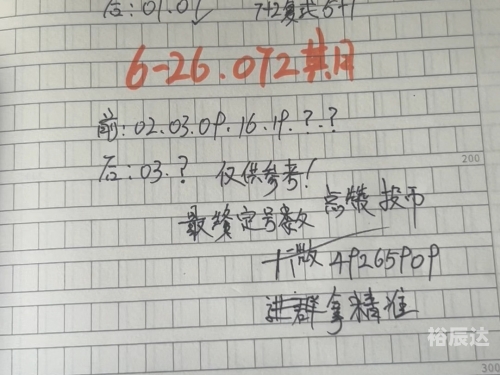 后:01.07 7+2复式5+1
6-26.072期
前:02.03.09.16.19.?.?
后:03.? 仅供参考!
最终定号家人 点赞投币
十微 49265909
进群拿精准
200
裕辰达
300